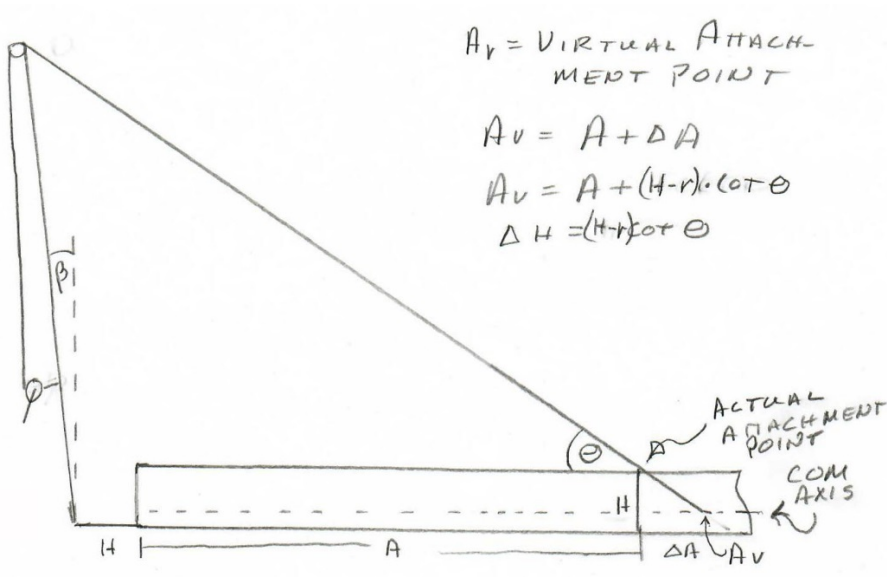 Av = VIRTUAL ATTACH-
MENT POINT
Av = A + ΔA
Av = A + (H-r)·COT θ
ΔH = (H-r)COT θ
β
φ
θ
ACTUAL
ATTACHMENT
POINT
COM
AXIS
H
H
A
ΔA
Av